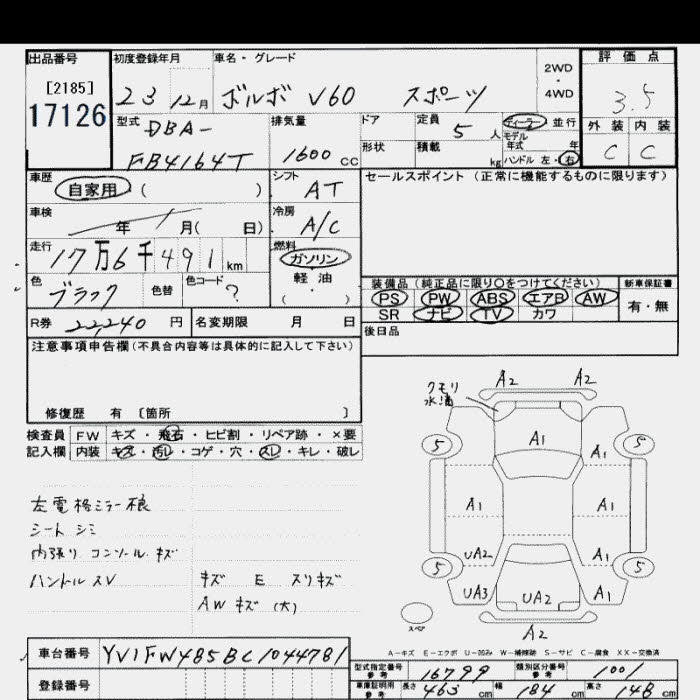 出品番号 初度登録年月 車名・グレード 2WD・4WD 評価点
[2185]
17126
23 12月 ボルボ V60 スポーツ 3.5
型式 DBA- 排気量 ドア 定員 5人 ディーラー 並行 外装 内装
FB4164T 1600cc 形状 積載 kg モデル年式 年 ハンドル 左・右 C C
車歴 自家用 ( ) シフト AT セールスポイント (正常に機能するものに限ります)
車検 年 月( 日) 冷房 A/C
走行 17万6千491km 燃料 ガソリン
軽油
( )
色 ブラック 色替 色コード ?
装備品 (純正品に限り○をつけてください) 新車保証書
PS PW ABS エアB AW 有・無
SR ナビ TV カワ
R券 22,240円 名変期限 月 日 後日品
注意事項申告欄 (不具合内容等は具体的に記入して下さい)
修復歴 有 〔箇所 〕
検査員 FW キズ・飛石・ヒビ割・リペア跡・×要
記入欄 内装 キズ・汚レ・コゲ・穴・スレ・キレ・破レ
クモリ
水滴
A2 A2
5 A1 5
A1 A1
UA2 A1
5 5
UA3 UA2 A1
スペア
A2
左電格ミラー
シート シミ
内張り コンソール キズ
ハンドル スレ キズ E スリキズ
AW キズ (大)
A-キズ E-エクボ U-凹み W-補修跡 S-サビ C-腐食 XX-交換済
車台番号 YV1FW485BC1044781
登録番号
型式指定番号 参考 16799 類別区分番号 参考 1001
車庫証明用 参考 長さ 463cm 幅 184cm 高さ 148cm